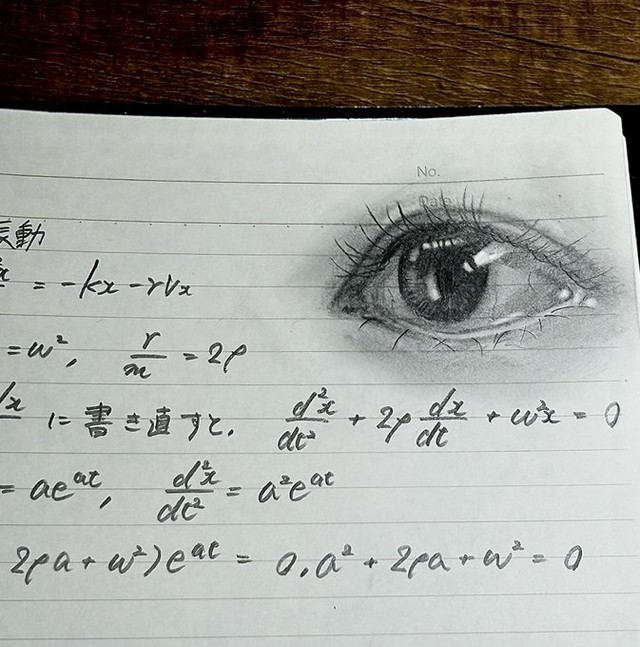 No.
Date
振動
= -kx - rVx
= ω², r/m = 2ρ
に書き直すと, d²x/dt² + 2ρ dx/dt + ω²x = 0
= ae^at, d²x/dt² = a²e^at
2ρa + ω²)e^at = 0, a² + 2ρa + ω² = 0